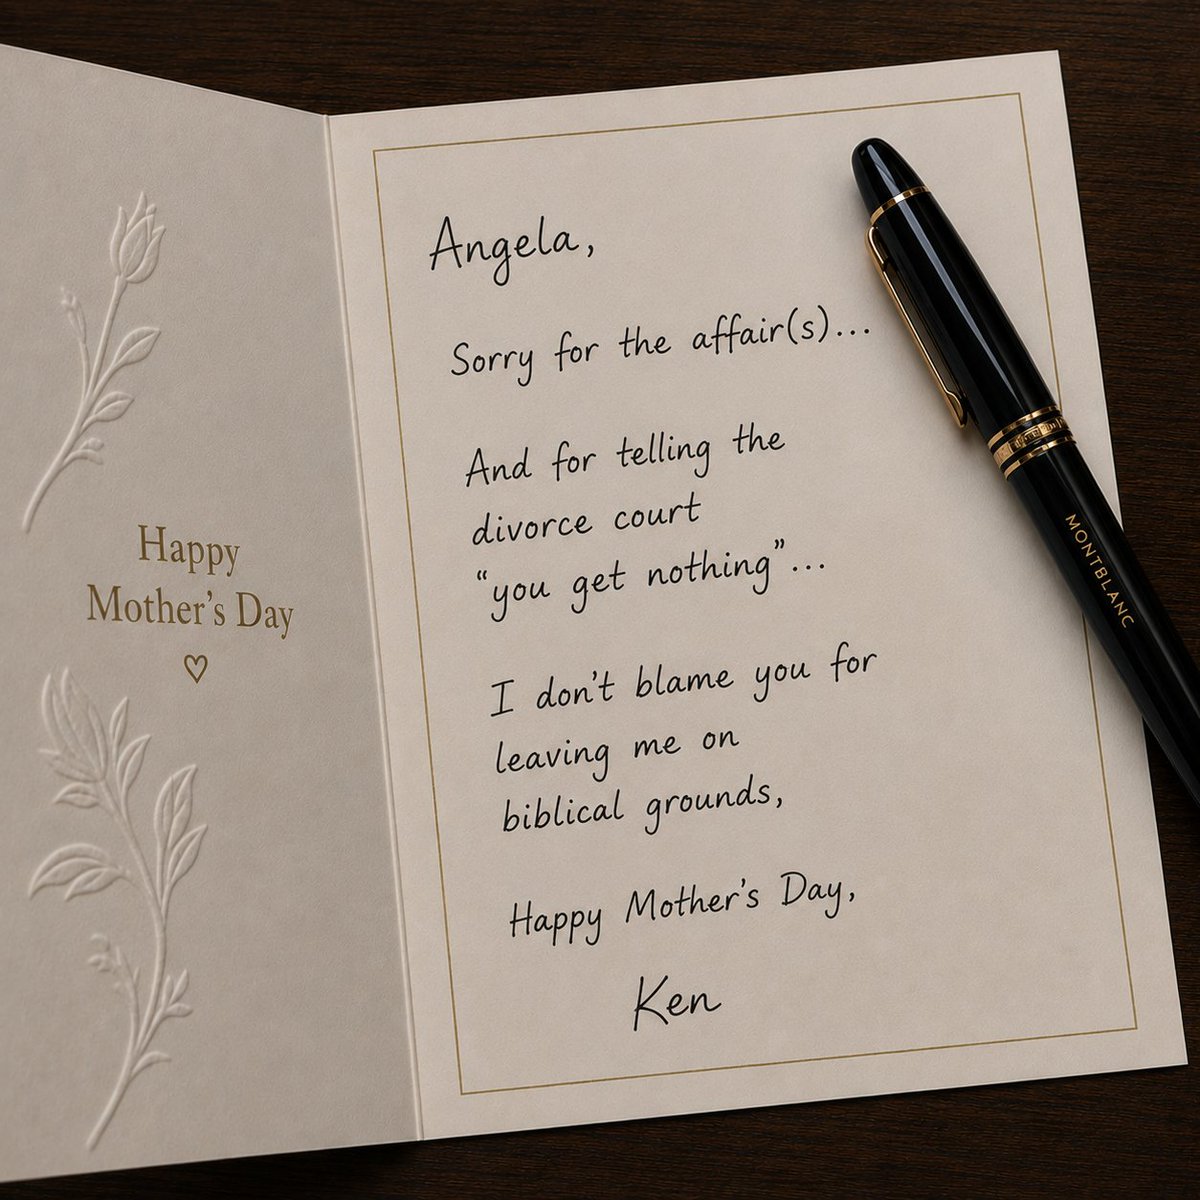 Happy
Mother's Day
♡
Angela,
Sorry for the affair(s)...
And for telling the
divorce court
“you get nothing”...
I don't blame you for
leaving me on
biblical grounds,
Happy Mother's Day,
Ken
MONTBLANC